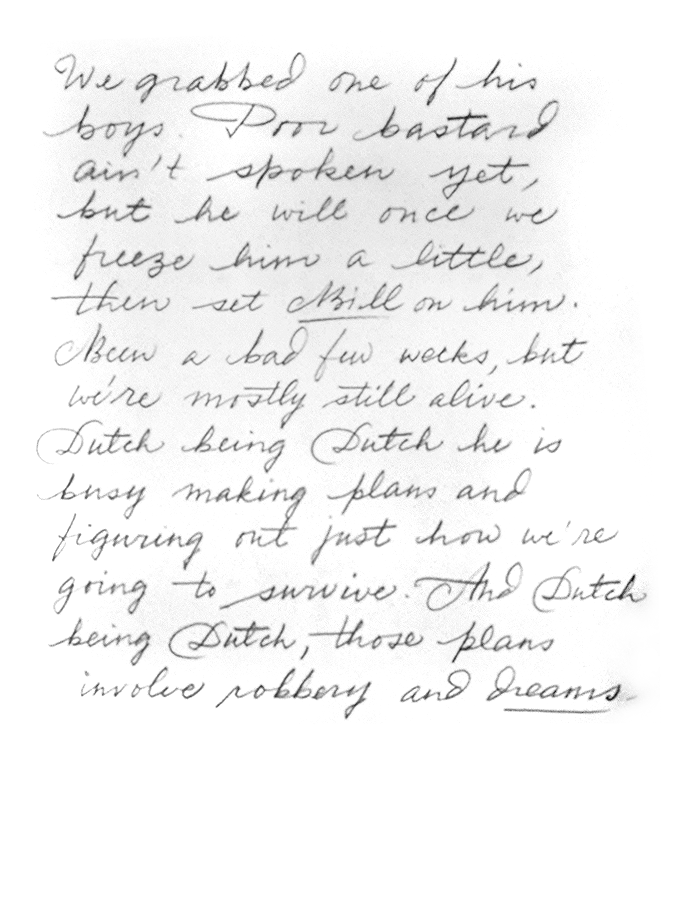 We grabbed one of his
boys. Poor bastard
ain't spoken yet,
but he will once we
freeze him a little,
then set Bill on him.
Been a bad few weeks, but
we're mostly still alive.
Dutch being Dutch he is
busy making plans and
figuring out just how we're
going to survive. And Dutch
being Dutch, those plans
involve robbery and dreams